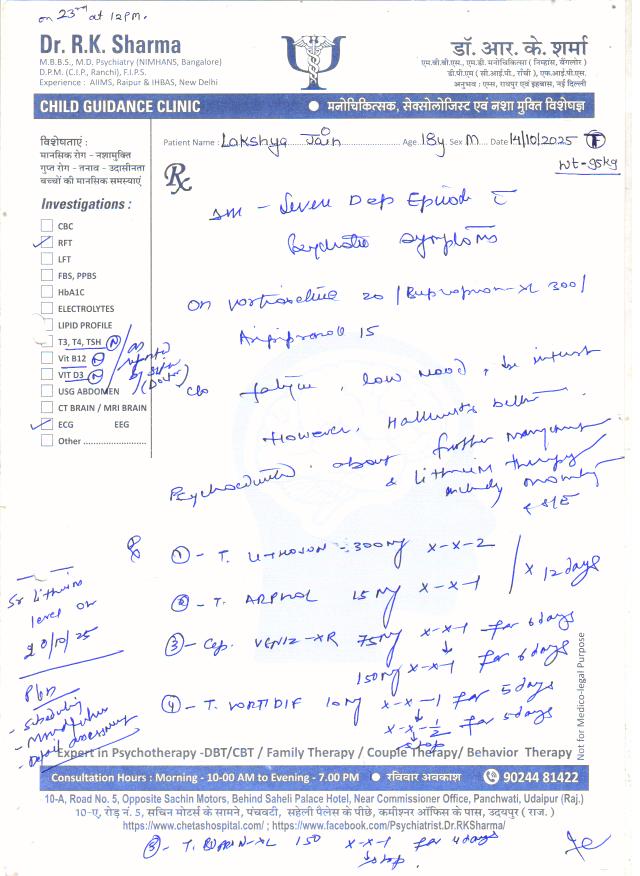 on 23rd at 12 PM.
Dr. R.K. Sharma
M.B.B.S., M.D. Psychiatry (NIMHANS, Bangalore)
D.P.M. (C.I.P., Ranchi), F.I.P.S.
Experience : AIIMS, Raipur & IHBAS, New Delhi
डॉ. आर. के. शर्मा
एम.बी.बी.एस., एम.डी. मनोचिकित्सा ( निम्हांस, बैंगलोर )
डी.पी.एम ( सी.आई.पी., राँची ), एफ.आई.पी.एस.
अनुभव : एम्स, रायपुर एवं इहबास, नई दिल्ली
CHILD GUIDANCE CLINIC
● मनोचिकित्सक, सेक्सोलोजिस्ट एवं नशा मुक्ति विशेषज्ञ
Patient Name : Lakshya Jain Age. 18y Sex M Date 14/10/2025
wt - 95kg
विशेषताएं :
मानसिक रोग - नशामुक्ति
गुप्त रोग - तनाव - उदासीनता
बच्चों की मानसिक समस्याएं
Investigations :
CBC
RFT
LFT
FBS, PPBS
HbA1C
ELECTROLYTES
LIPID PROFILE
T3, T4, TSH N
Vit B12 N
VIT D3 N
as reported by (Doctor)
USG ABDOMEN
CT BRAIN / MRI BRAIN
ECG EEG
Other ......................
Rx
Severe Dep Episode c
Psychotic symptoms
On Vortioxetine 20 / Bupropion-XL 300 /
Aripiprazole 15
c/o fatigue, low mood, interest
However, Hallucinats better
about further
& Lithium therapy
& S/E
① - T. LITHOSUN - 300mg x-x-2
② - T. ARPIZOL 15 mg x-x-1
x 12 days
③ - Cap. VENIZ-XR 75mg x-x-1 for 6 days
150mg x-x-1 for 6 days
④ - T. VORTIDIF 10mg x-x-1 for 5 days
x-x-½ for 5 days
stop
Sr Lithium
level on
20/10/25
- Scheduling
- Detail assessment
Not for Medico-legal Purpose
Expert in Psychotherapy -DBT/CBT / Family Therapy / Couple Therapy/ Behavior Therapy
Consultation Hours : Morning - 10-00 AM to Evening - 7.00 PM ● रविवार अवकाश 90244 81422
10-A, Road No. 5, Opposite Sachin Motors, Behind Saheli Palace Hotel, Near Commissioner Office, Panchwati, Udaipur (Raj.)
10-ए, रोड़ नं. 5, सचिन मोटर्स के सामने, पंचवटी, सहेली पैलेस के पीछे, कमीश्नर ऑफिस के पास, उदयपुर ( राज. )
https://www.chetashospital.com/ ; https://www.facebook.com/Psychiatrist.Dr.RKSharma/
⑤ - T. BUPRON-XL 150 x-x-1 for 4 days
stop